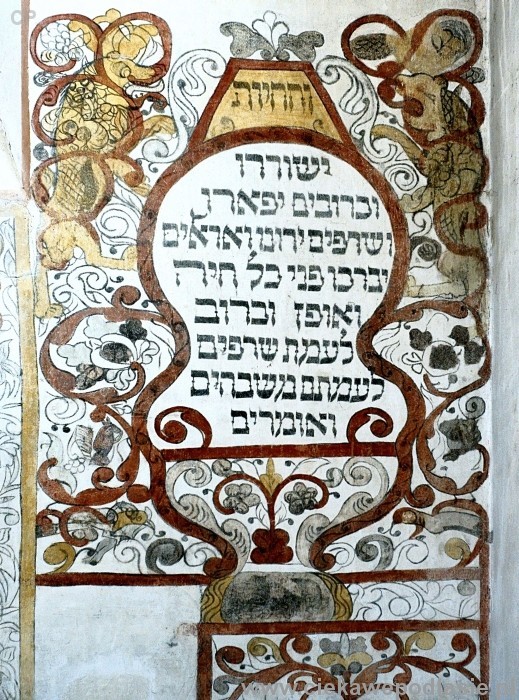 CP
והחיות
ישוררו
וכרובים יפארו
ושרפים ירונו ואראלים
יברכו פני כל חיה
ואופן וכרוב
לעמת שרפים
לעמתם משבחים
ואומרים